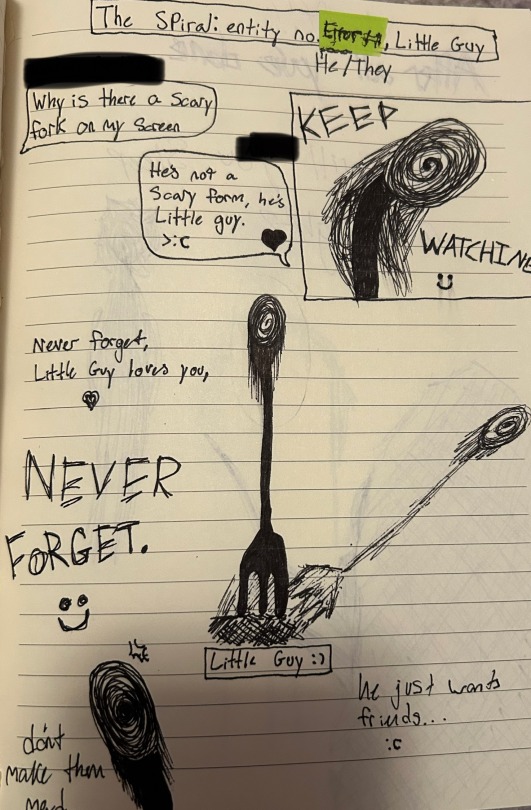 The Spiral: entity no. Error##, Little Guy
He/They
Why is there a Scary
fork on my Screen
He's not a
Scary form, he's
Little guy.
>:C
KEEP
WATCHING
Never forget,
Little Guy loves you,
NEVER
FORGET.
Little Guy :)
he just wants
friends...
:c
don't
make them
mad